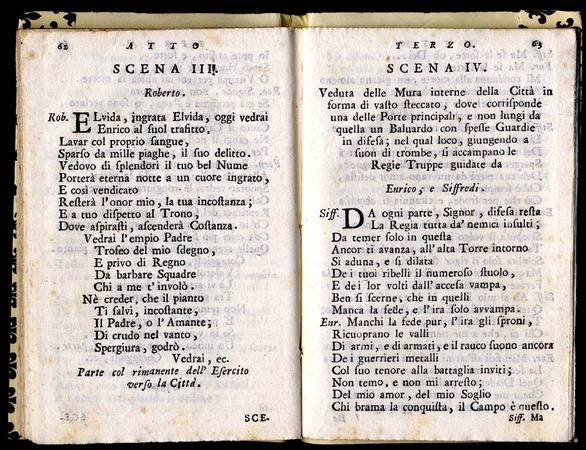 62 ATTO
SCENA III.
Roberto.
Rob. ELvida, ingrata Elvida, oggi vedrai
Enrico al suol trafitto,
Lavar col proprio sangue,
Sparso da mille piaghe, il suo delitto.
Vedovo di splendori il tuo bel Nume
Porterà eterna notte a un cuore ingrato,
E così vendicato
Resterà l'onor mio, la tua incostanza;
E a tuo dispetto al Trono,
Dove aspirasti, ascenderà Costanza.
Vedrai l'empio Padre
Trofeo del mio sdegno,
E privo di Regno
Da barbare Squadre
Chi a me t'involò.
Nè creder, che il pianto
Ti salvi, incostante,
Il Padre, o l'Amante;
Di crudo nel vanto,
Spergiura, godrò.
Vedrai, ec.
Parte col rimanente dell' Esercito
verso la Città.
SCE-
TERZO. 63
SCENA IV.
Veduta delle Mura interne della Città in
forma di vasto steccato, dove corrisponde
una delle Porte principali, e non lungi da
quella un Baluardo con spesse Guardie
in difesa; nel qual loco, giungendo a
suon di trombe, si accampano le
Regie Truppe guidate da
Enrico, e Siffredi.
Siff. DA ogni parte, Signor, difesa resta
La Regia tutta da' nemici insulti;
Da temer solo in questa
Ancor ti avanza, all'alta Torre intorno
Si aduna, e si dilata
De i tuoi ribelli il numeroso stuolo,
E de i lor volti dall'accesa vampa,
Ben si scerne, che in quelli
Manca la fede, e l'ira solo avvampa.
Enr. Manchi la fede pur, l'ira gli sproni,
Ricuoprano le valli
Di armi, e di armati, e il rauco suono ancora
De i guerrieri metalli
Col suo tenore alla battaglia inviti;
Non temo, e non mi arresto;
Del mio amor, del mio Soglio
Chi brama la conquista, il Campo è questo.
Siff. Ma